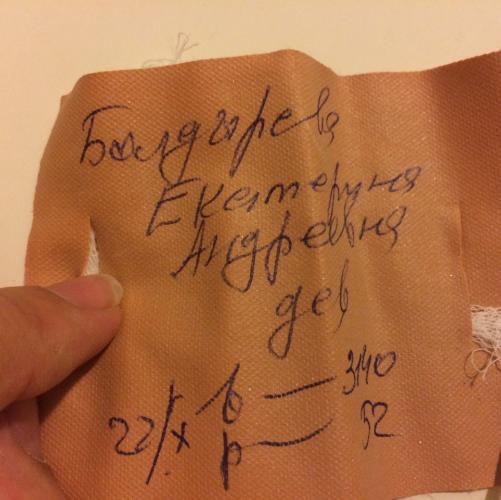 Болдырева
Екатерина
Андреевна
дев
22/X в — 3140
р — 52